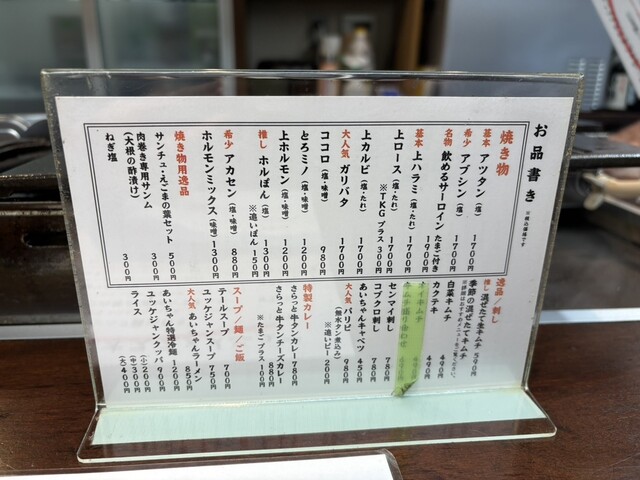 お品書き
※税込価格です
焼き物
基本 アツタン（塩） 1700円
希少 アブシン（塩） 1700円
名物 飲めるサーロイン たまご付き 1900円
基本 上ハラミ（塩・たれ） 1700円
上ロース（塩・たれ） 1700円
※TKGプラス 300円
上カルビ（塩・たれ） 1700円
大人気 ガリバタ 1700円
ココロ（塩・味噌） 980円
とろミノ（塩・味噌） 1200円
上ホルモン（塩・味噌） 1200円
推し ホルぽん（塩） 1300円
※追いぽん 150円
希少 アカセン（塩・味噌） 880円
ホルモンミックス（塩・味噌） 1300円
焼き物用逸品
サンチュ・えごまの葉セット 500円
肉巻き専用サンム（大根の酢漬け） 300円
ねぎ塩 300円
逸品／刺し
推し 混ぜたて生キムチ 590円
季節の混ぜたてキムチ
白菜キムチ 490円
カクテキ 490円
オイキムチ
センマイ刺し 780円
コブクロ刺し 780円
あいちゃんキャベツ 450円
大人気 パリピ（無水タン煮込み） 980円
※追いピー 200円
特製カレー
さらっと牛タンカレー 780円
さらっと牛タンチーズカレー 880円
※たまごプラス 100円
スープ／麺／ご飯
テールスープ 700円
ユッケジャンスープ 750円
大人気 あいちゃんラーメン 850円
あいちゃん特選冷麺 1200円
ユッケジャンクッパ 900円
ライス （小）200円 （中）300円 （大）400円